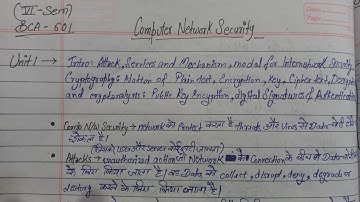 (VI-Sem)
BCA-601
Computer Network Security
Date
Page
Unit 1 → Intro: Attack, Services and Mechanism, modal for Internetwork Security
Cryptography: Notion of Plain text, Encryption, Key, Cipher text, Decrypt
and cryptanalysis: Public Key Encryption, digital Signatures of Authentication
• Comp N/w Security → network को Protect करता है threads और Virus से Data चोरी होने
रोकता है।
• Attacks → unauthorized action on Network के Connection के बीच में
के लिए किया जाता है। Data को collect, disrupt, deny, degrade or
destroy करने के लिए किया जाता है।